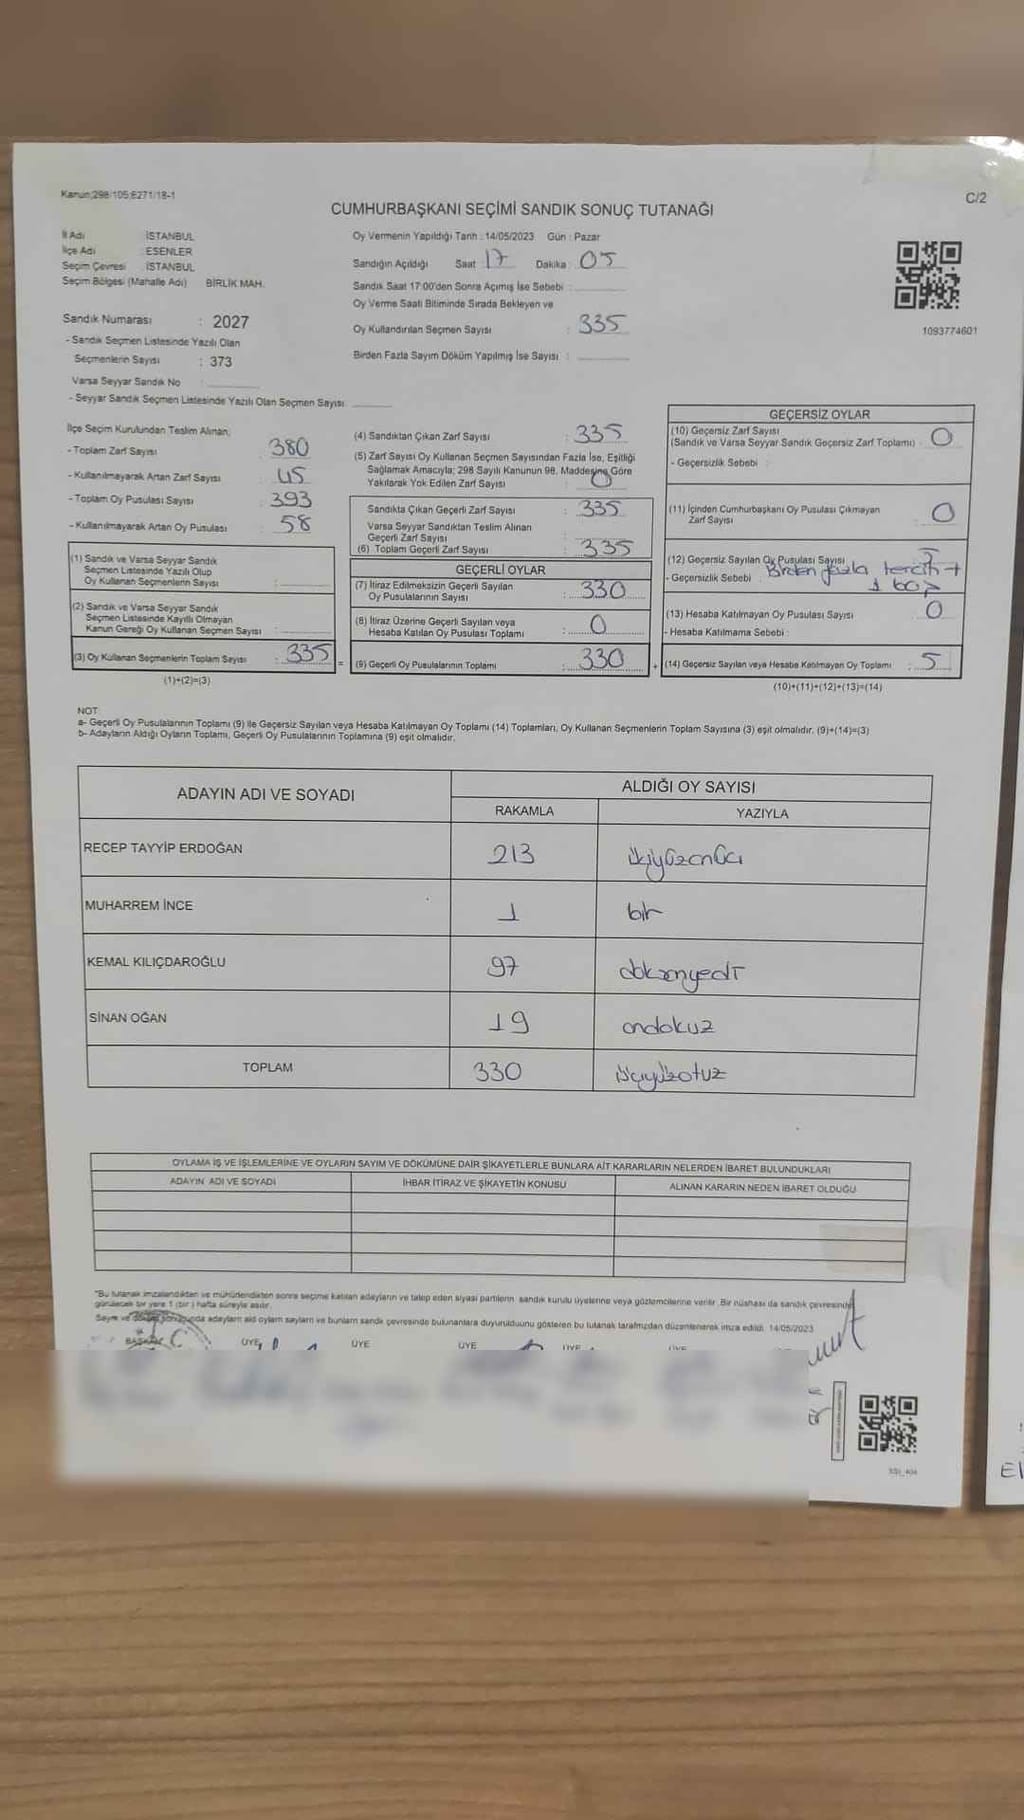 Kanun:298/105;6271/18-1
C/2
CUMHURBAŞKANI SEÇİMİ SANDIK SONUÇ TUTANAĞI
İl Adı İSTANBUL
İlçe Adı : ESENLER
Seçim Çevresi İSTANBUL
Seçim Bölgesi (Mahalle Adı) BİRLİK MAH.
Sandık Numarası : 2027
- Sandık Seçmen Listesinde Yazılı Olan
Seçmenlerin Sayısı : 373
Varsa Seyyar Sandık No :
- Seyyar Sandık Seçmen Listesinde Yazılı Olan Seçmen Sayısı:
Oy Vermenin Yapıldığı Tarih : 14/05/2023 Gün : Pazar
Sandığın Açıldığı Saat 17 Dakika : 05
Sandık Saat 17:00'den Sonra Açımış İse Sebebi :
Oy Verme Saati Bitiminde Sırada Bekleyen ve
Oy Kullandırılan Seçmen Sayısı : 335
Birden Fazla Sayım Döküm Yapılmış İse Sayısı :
1093774601
İlçe Seçim Kurulundan Teslim Alınan;
- Toplam Zarf Sayısı : 380
- Kullanılmayarak Artan Zarf Sayısı : 45
- Toplam Oy Pusulası Sayısı : 393
- Kullanılmayarak Artan Oy Pusulası : 58
(1) Sandık ve Varsa Seyyar Sandık
Seçmen Listesinde Yazılı Olup
Oy Kullanan Seçmenlerin Sayısı :
(2) Sandık ve Varsa Seyyar Sandık
Seçmen Listesinde Kayıtlı Olmayan
Kanun Gereği Oy Kullanan Seçmen Sayısı :
(3) Oy Kullanan Seçmenlerin Toplam Sayısı : 335 =
(1)+(2)=(3)
(4) Sandıktan Çıkan Zarf Sayısı : 335
(5) Zarf Sayısı Oy Kullanan Seçmen Sayısından Fazla İse, Eşitliği
Sağlamak Amacıyla; 298 Sayılı Kanunun 98. Maddesine Göre
Yakılarak Yok Edilen Zarf Sayısı : 0
Sandıkta Çıkan Geçerli Zarf Sayısı : 335
Varsa Seyyar Sandıktan Teslim Alınan
Geçerli Zarf Sayısı :
(6) Toplam Geçerli Zarf Sayısı : 335
GEÇERLİ OYLAR
(7) İtiraz Edilmeksizin Geçerli Sayılan
Oy Pusulalarının Sayısı : 330
(8) İtiraz Üzerine Geçerli Sayılan veya
Hesaba Katılan Oy Pusulası Toplamı : 0
(9) Geçerli Oy Pusulalarının Toplamı : 330 +
GEÇERSİZ OYLAR
(10) Geçersiz Zarf Sayısı
(Sandık ve Varsa Seyyar Sandık Geçersiz Zarf Toplamı) : 0
- Geçersizlik Sebebi :
(11) İçinden Cumhurbaşkanı Oy Pusulası Çıkmayan
Zarf Sayısı : 0
(12) Geçersiz Sayılan Oy Pusulası Sayısı : 5
- Geçersizlik Sebebi : Birden fazla tercih +
1 boş
(13) Hesaba Katılmayan Oy Pusulası Sayısı : 0
- Hesaba Katılmama Sebebi :
(14) Geçersiz Sayılan veya Hesaba Katılmayan Oy Toplamı : 5
(10)+(11)+(12)+(13)=(14)
NOT
a- Geçerli Oy Pusulalarının Toplamı (9) ile Geçersiz Sayılan veya Hesaba Katılmayan Oy Toplamı (14) Toplamları, Oy Kullanan Seçmenlerin Toplam Sayısına (3) eşit olmalıdır. (9)+(14)=(3)
b- Adayların Aldığı Oyların Toplamı, Geçerli Oy Pusulalarının Toplamına (9) eşit olmalıdır.
ADAYIN ADI VE SOYADI ALDIĞI OY SAYISI
RAKAMLA YAZIYLA
RECEP TAYYİP ERDOĞAN 213 ikiyüzonüç
MUHARREM İNCE 1 bir
KEMAL KILIÇDAROĞLU 97 doksanyedi
SİNAN OĞAN 19 ondokuz
TOPLAM 330 üçyüzotuz
OYLAMA İŞ VE İŞLEMLERİNE VE OYLARIN SAYIM VE DÖKÜMÜNE DAİR ŞİKAYETLERLE BUNLARA AİT KARARLARIN NELERDEN İBARET BULUNDUKLARI
ADAYIN ADI VE SOYADI İHBAR İTİRAZ VE ŞİKAYETİN KONUSU ALINAN KARARIN NEDEN İBARET OLDUĞU
"Bu tutanak imzalandıktan ve mühürlendikten sonra seçime katılan adayların ve talep eden siyasi partilerin sandık kurulu üyelerine veya gözlemcilerine verilir. Bir nüshası da sandık çevresinde
görülecek bir yere 1 (bir) hafta süreyle asılır.
Sayım ve döküm sonucunda adayların aldığı oyların sayılarını ve bunların sandık çevresinde bulunanlara duyurulduğunu gösteren bu tutanak tarafımızdan düzenlenerek imza edildi. 14/05/2023
BAŞKAN ÜYE ÜYE ÜYE ÜYE ÜYE